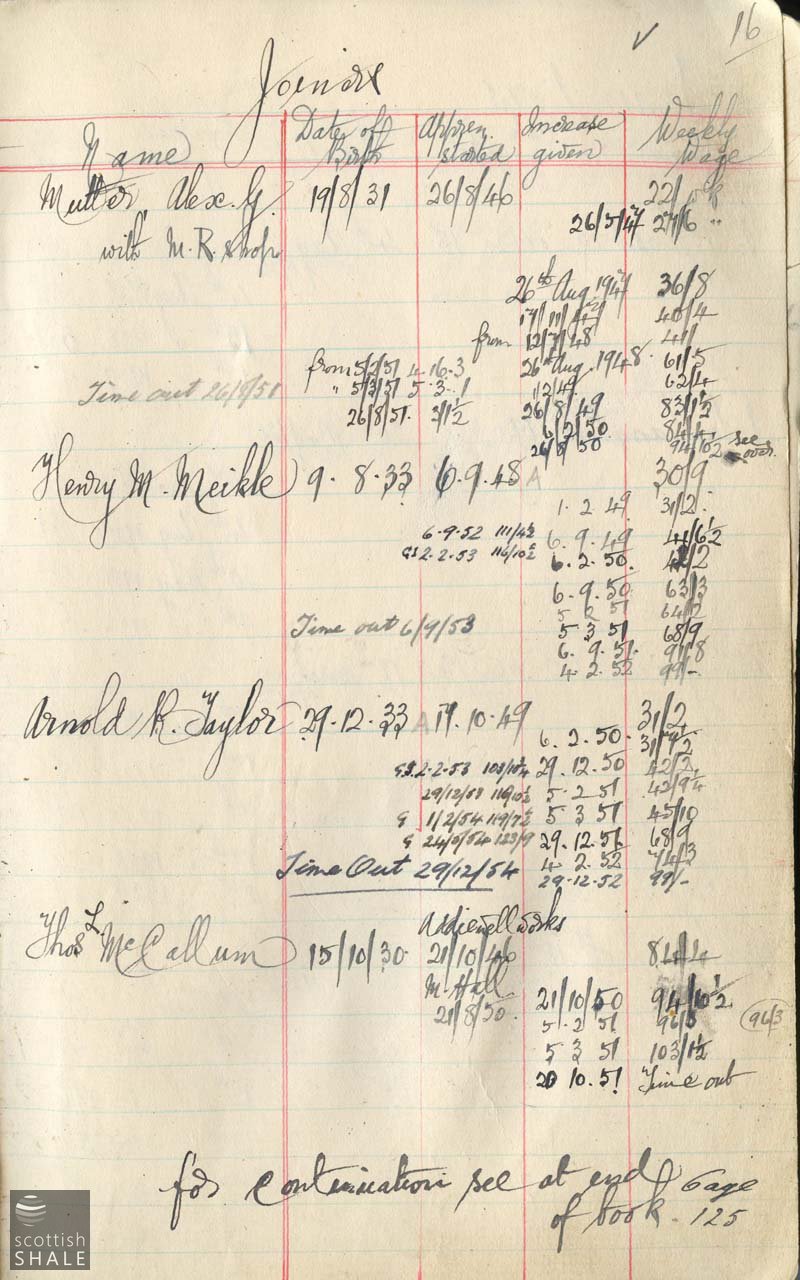 16
Joiners
Name Date of Birth Appren. started Increase given Weekly Wage
Mutter, Alex. G. 19/8/31 26/8/46 22/- wk
26/5/47 27/6 "
with M.R. Shop
26th Aug 1947 36/8
17/11/47 40/4
from 12/7/48 41/
from 5/2/51 4-16-3 26th Aug. 1948. 61/5
Time out 26/9/51 " 5/3/51 5-3-1 1/2/49 62/4
26/8/51. 26/8/49 83/1½
6/2/50 84/4
26/8/50 94/10½ see over
Henry M. Meikle 9.8.33 6.9.48 A 30/9
1.2.49 31/2.
6-9-52 111/4½ 6.9.49 41/6½
GI 2-2-53 116/10½ 6.2.50. 42/2
6.9.50 63/3
5 2 51 64/2
Time out 6/9/53 5 3 51 68/9
6.9.51. 91/8
4.2.52 99/-
Arnold R. Taylor 29.12.33 A 19.10.49 31/2
6.2.50. 31/7½
2-2-53 29.12.50 42/2
29/12/53 116/10½ 5-2 51 42/9¼
G 1/2/54 119/7½ 5 3 51 45/10
G 123/9 29.12.51 68/9
Time Out 29/12/54 4.2.52 74/3
29-12-52 99/-
Addiewell works
Thos L McCallum 15/10/30 21/10/46 84/4
M. Hall
21/8/50. 21/10/50 94/10½
5.2 51 96/3 96/3
5 3 51 103/1½
20 10.51 Time out
for continuation see at end Page
of book. 125
scottish
SHALE